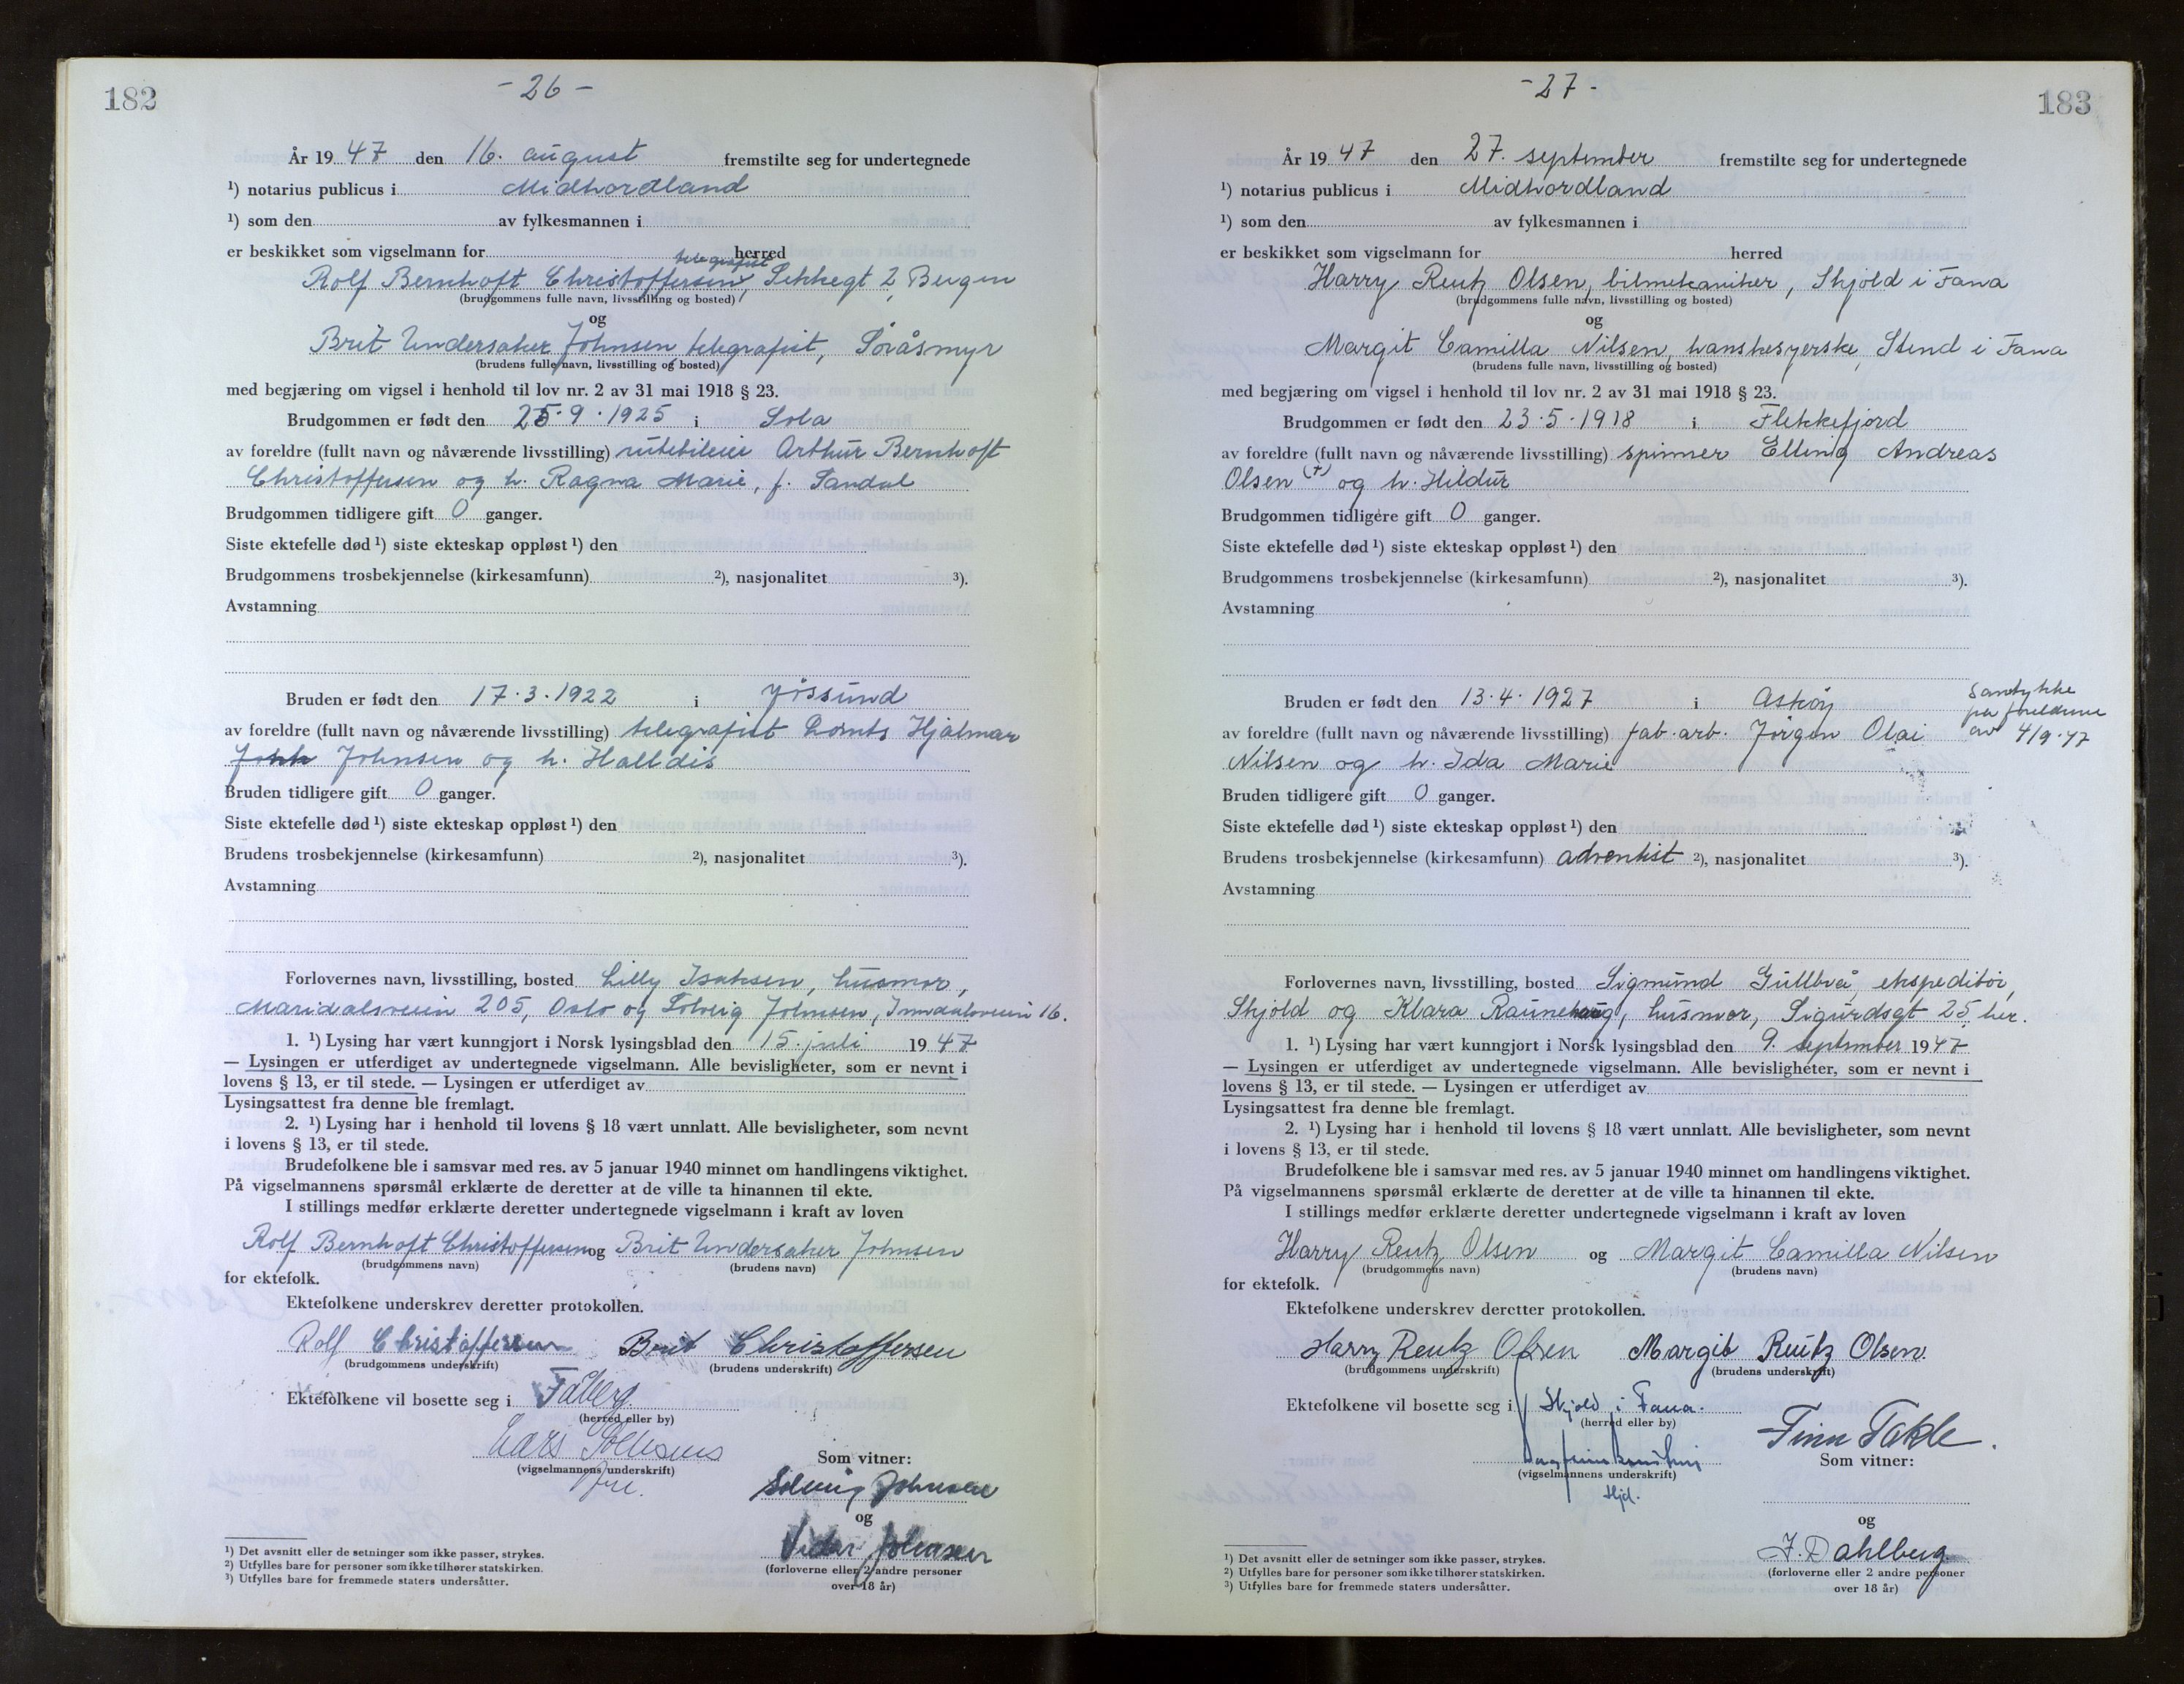 182
- 26 -
År 19 47 den 16. august fremstilte seg for undertegnede
¹) notarius publicus i Midhordland
¹) som den av fylkesmannen i
er beskikket som vigselmann for herred
telegrafist
Rolf Bernhoft Christoffersen, Sekkegt 2, Bergen
(brudgommens fulle navn, livsstilling og bosted)
og
Brit Undersaker Johnsen telegrafist, Söråsmyr
(brudens fulle navn, livsstilling og bosted)
med begjæring om vigsel i henhold til lov nr. 2 av 31 mai 1918 § 23.
Brudgommen er født den 25.9.1925 i Sola
av foreldre (fullt navn og nåværende livsstilling) rutebileier Arthur Bernhoft
Christoffersen og h. Ragna Marie, f. Sandal
Brudgommen tidligere gift 0 ganger.
Siste ektefelle død ¹) siste ekteskap oppløst ¹) den
Brudgommens trosbekjennelse (kirkesamfunn) ²), nasjonalitet ³).
Avstamning
Bruden er født den 17.3.1922 i Jössund
av foreldre (fullt navn og nåværende livsstilling) telegrafist Hjalmar
Johnsen og h. Halldis
Bruden tidligere gift 0 ganger.
Siste ektefelle død ¹) siste ekteskap oppløst ¹) den
Brudens trosbekjennelse (kirkesamfunn) ²), nasjonalitet ³).
Avstamning
Forlovernes navn, livsstilling, bosted Lilly Isaksen, husmor,
Maridalsveien 205, Oslo og Solveig Johnsen, 16.
1. ¹) Lysing har vært kunngjort i Norsk lysingsblad den 15. juli 19 47
— Lysingen er utferdiget av undertegnede vigselmann. Alle bevisligheter, som er nevnt i
lovens § 13, er til stede. — Lysingen er utferdiget av
Lysingsattest fra denne ble fremlagt.
2. ¹) Lysing har i henhold til lovens § 18 vært unnlatt. Alle bevisligheter, som nevnt
i lovens § 13, er til stede.
Brudefolkene ble i samsvar med res. av 5 januar 1940 minnet om handlingens viktighet.
På vigselmannens spørsmål erklærte de deretter at de ville ta hinannen til ekte.
I stillings medfør erklærte deretter undertegnede vigselmann i kraft av loven
Rolf Bernhoft Christoffersen og Brit Undersaker Johnsen
(brudgommens navn) (brudens navn)
for ektefolk.
Ektefolkene underskrev deretter protokollen.
Rolf Christoffersen Brit Christoffersen
(brudgommens underskrift) (brudens underskrift)
Ektefolkene vil bosette seg i Fåberg.
(herred eller by)
Lars
(vigselmannens underskrift)
Som vitner:
Solveig Johnsen
og
Vidar Johnsen
(forloverne eller 2 andre personer
over 18 år)
¹) Det avsnitt eller de setninger som ikke passer, strykes.
²) Utfylles bare for personer som ikke tilhører statskirken.
³) Utfylles bare for fremmede staters undersåtter.
183
- 27 -
År 19 47 den 27. september fremstilte seg for undertegnede
¹) notarius publicus i Midhordland
¹) som den av fylkesmannen i
er beskikket som vigselmann for herred
Harry Reutz Olsen, bilmekaniker, Skjold i Fana
(brudgommens fulle navn, livsstilling og bosted)
og
Margit Camilla Nilsen, hanskesyerske, Stend i Fana
(brudens fulle navn, livsstilling og bosted)
med begjæring om vigsel i henhold til lov nr. 2 av 31 mai 1918 § 23.
Brudgommen er født den 23.5.1918 i Flekkefjord
av foreldre (fullt navn og nåværende livsstilling) spinner Elling Andreas
Olsen (+) og h. Hildur
Brudgommen tidligere gift 0 ganger.
Siste ektefelle død ¹) siste ekteskap oppløst ¹) den
Brudgommens trosbekjennelse (kirkesamfunn) ²), nasjonalitet ³).
Avstamning
Bruden er født den 13.4.1927 i Asköy
Samtykke
fra foreldrene
av 4/9.47
av foreldre (fullt navn og nåværende livsstilling) fab.arb. Jörgen Olai
Nilsen og h. Ida Marie
Bruden tidligere gift 0 ganger.
Siste ektefelle død ¹) siste ekteskap oppløst ¹) den
Brudens trosbekjennelse (kirkesamfunn) adventist ²), nasjonalitet ³).
Avstamning
Forlovernes navn, livsstilling, bosted Sigmund Gullbrå, ekspeditör,
Skjold og Klara Raunehaug, husmor, Sigurdsgt 25, her.
1. ¹) Lysing har vært kunngjort i Norsk lysingsblad den 9. september 19 47
— Lysingen er utferdiget av undertegnede vigselmann. Alle bevisligheter, som er nevnt i
lovens § 13, er til stede. — Lysingen er utferdiget av
Lysingsattest fra denne ble fremlagt.
2. ¹) Lysing har i henhold til lovens § 18 vært unnlatt. Alle bevisligheter, som nevnt
i lovens § 13, er til stede.
Brudefolkene ble i samsvar med res. av 5 januar 1940 minnet om handlingens viktighet.
På vigselmannens spørsmål erklærte de deretter at de ville ta hinannen til ekte.
I stillings medfør erklærte deretter undertegnede vigselmann i kraft av loven
Harry Reutz Olsen og Margit Camilla Nilsen
(brudgommens navn) (brudens navn)
for ektefolk.
Ektefolkene underskrev deretter protokollen.
Harry Reutz Olsen Margit Reutz Olsen.
(brudgommens underskrift) (brudens underskrift)
Ektefolkene vil bosette seg i Skjold i Fana.
(herred eller by)
(vigselmannens underskrift)
Hjd.
Finn Takle.
Som vitner:
og
J. Dahlberg
(forloverne eller 2 andre personer
over 18 år)
¹) Det avsnitt eller de setninger som ikke passer, strykes.
²) Utfylles bare for personer som ikke tilhører statskirken.
³) Utfylles bare for fremmede staters undersåtter.